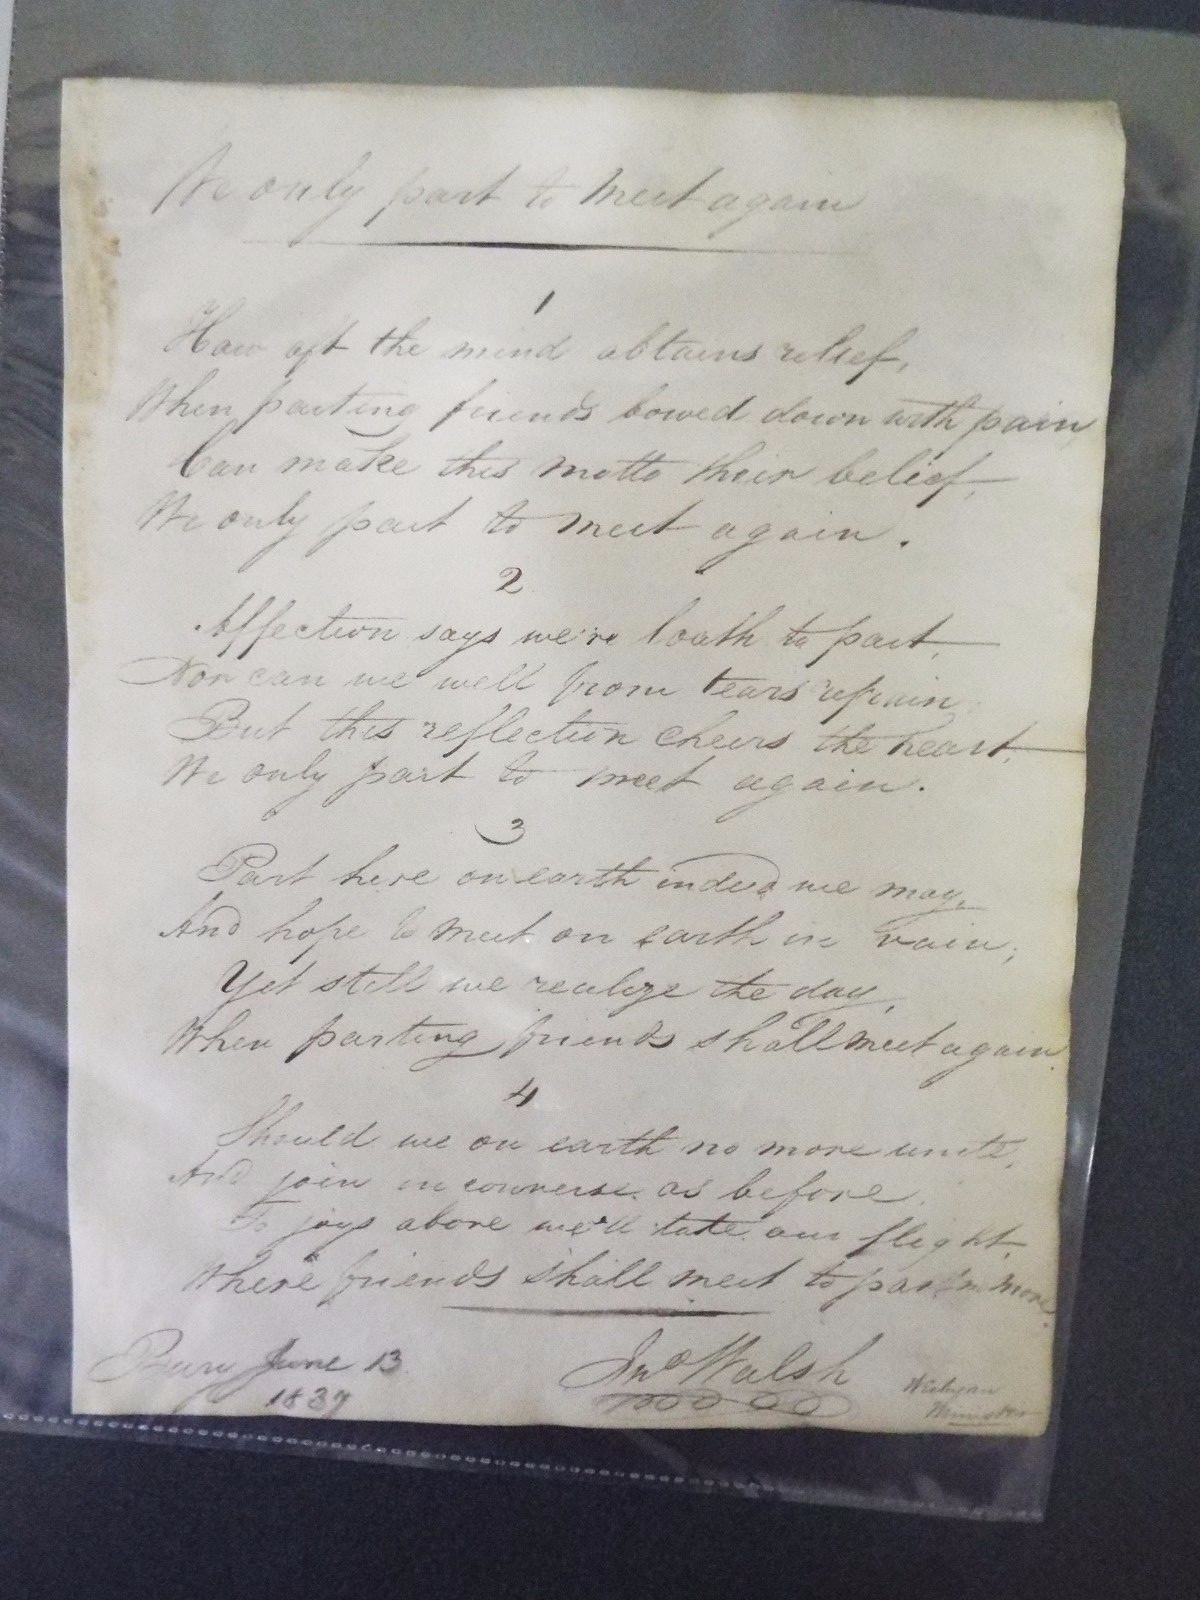 We only part to meet again
1
How oft the mind obtains relief,
When parting friends bowed down with pain,
Can make this motto their belief,
We only part to meet again.
2
Affection says we're loath to part,
Nor can we well from tears refrain,
But this reflection cheers the heart,
We only part to meet again.
3
Part here on earth indeed we may,
And hope to meet on earth in vain,
Yet still we realize the day,
When parting friends shall meet again.
4
Should we on earth no more unite,
And join in converse as before,
To joys above we'll take our flight,
Where friends shall meet to part no more.
Bury June 13
1837
Jno Walsh
Weslyan
Minister